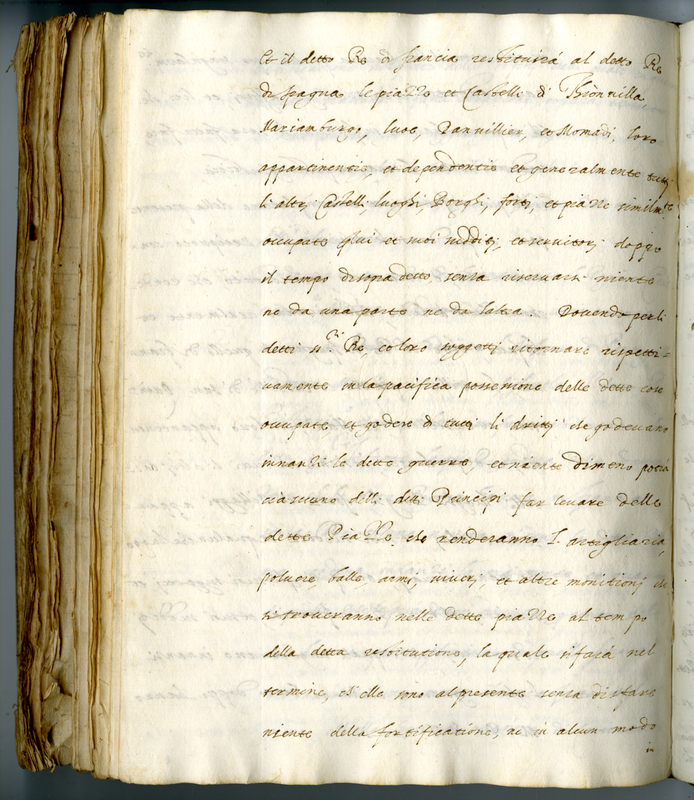 Et il detto Re di francia restituirà al detto Re
di spagna le piazze et Castelle di Thionvilla,
Mariamburgo, Iuoe, Danvillier, et Momadi, loro
appartinentie, et dependentie et generalmente tutti
li altri Castelli, luoghi, Borghi, forti, et piazze similmte
occupate qui et suoi sudditi, et servitori doppo
il tempo disopradetto senza riservarsi niente
ne da una parte ne da laltra. Dovendo perli
detti sri. Re, et loro soggetti ritornare rispetti=
vamente in la pacifica possessione delle dette cose
occupate, et godere di tutti li dritti che godevano
innanzi le dette guerre et niente dimeno potrà
ciascuno delli detti Principi far levare delle
dette Piazze che renderanno l'artigliaria,
polvere, balle, armi, viveri, et altre monitioni che
si troveranno nelle dette piazze al tempo
della detta restitutione, la quale si farà nel
termine, ch'elle sono al presente senza disfare
niente della fortificatione, ne in alcun modo
in